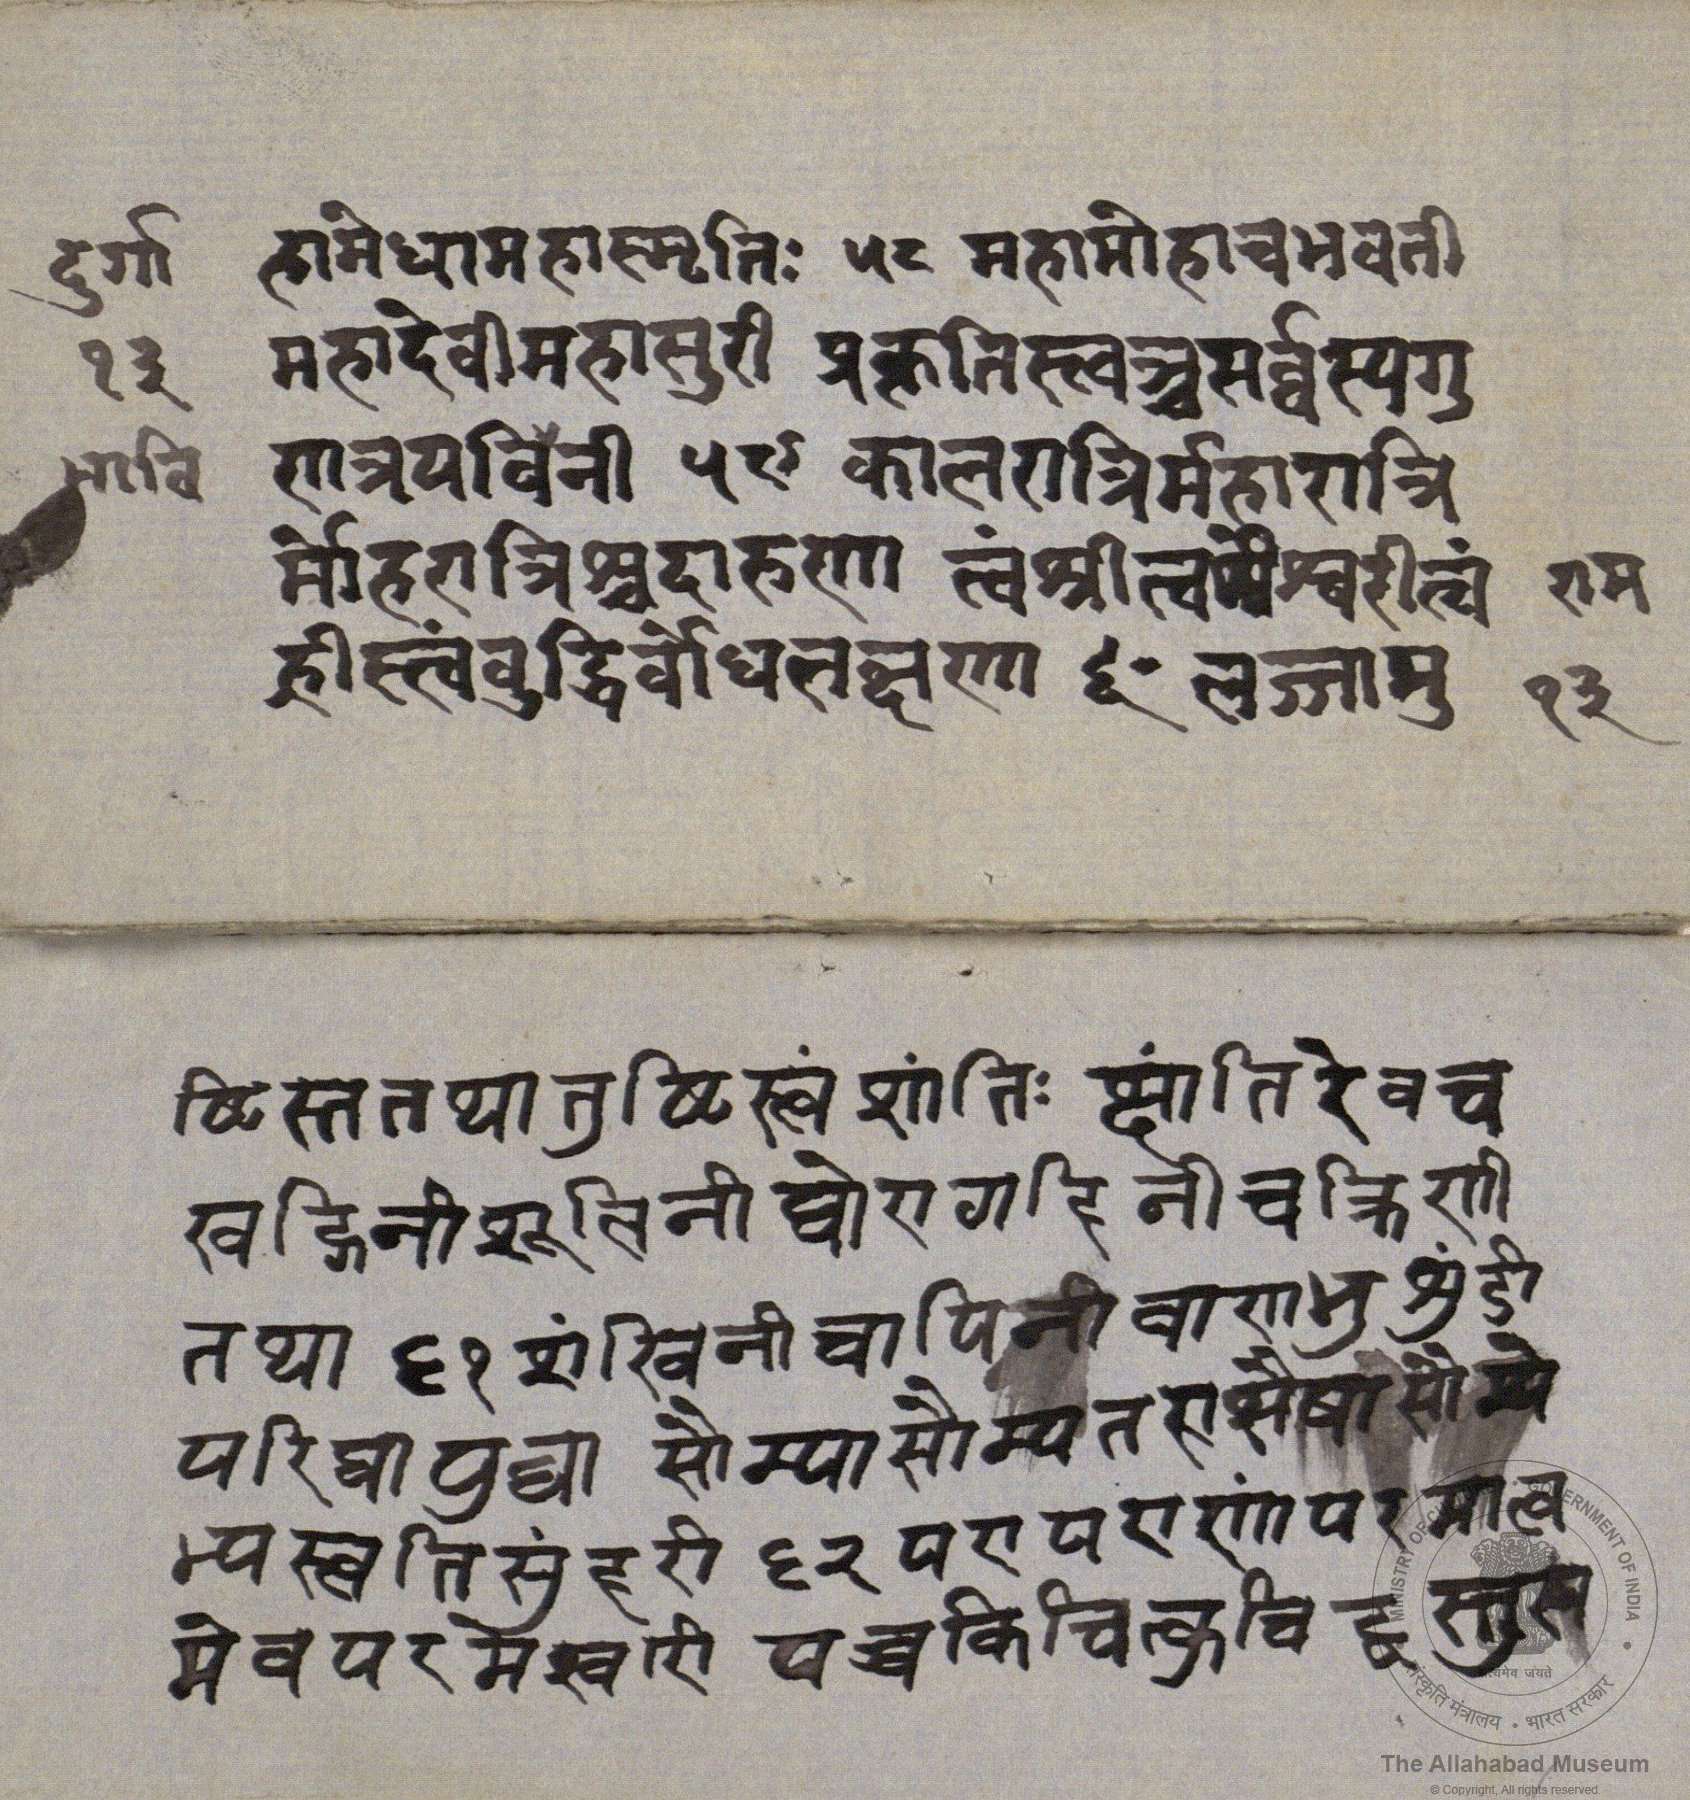 दुर्गा हामेधामहास्मृतिः ५८ महामोहाचभवती
१३ महादेवीमहासुरी प्रकृतिस्त्वञ्चसर्व्वस्यगु
भावि णात्रयविनी ५९ कालरात्रिर्महारात्रि
र्मोहरात्रिश्चदारुणा त्वंश्रीत्वमैश्वरीत्वं राम
ह्रीस्त्वंवुद्धिर्वोधलक्षणा ६० लज्जामु १३
ष्टिस्ततथातुष्टिस्त्वं शांतिः क्षांतिरेवच
खड्गिनीशूलिनीघोरागदिनीचक्रिणी
तथा ६१ शंखिनीचापिनीवाणाभुशुंडी
परिघायुधा सौम्यासौम्यतराशेषासौम्ये
भ्यस्त्वतिसुंदरी ६२ परापराणांपरमात्व
मेवपरमेस्वरी यच्चकिंचित्क्वचिद्वस्तुस
The Allahabad Museum
© Copyright, All rights reserved.
MINISTRY OF CULTURE • GOVERNMENT OF INDIA
सत्यमेव जयते
संस्कृति मंत्रालय • भारत सरकार